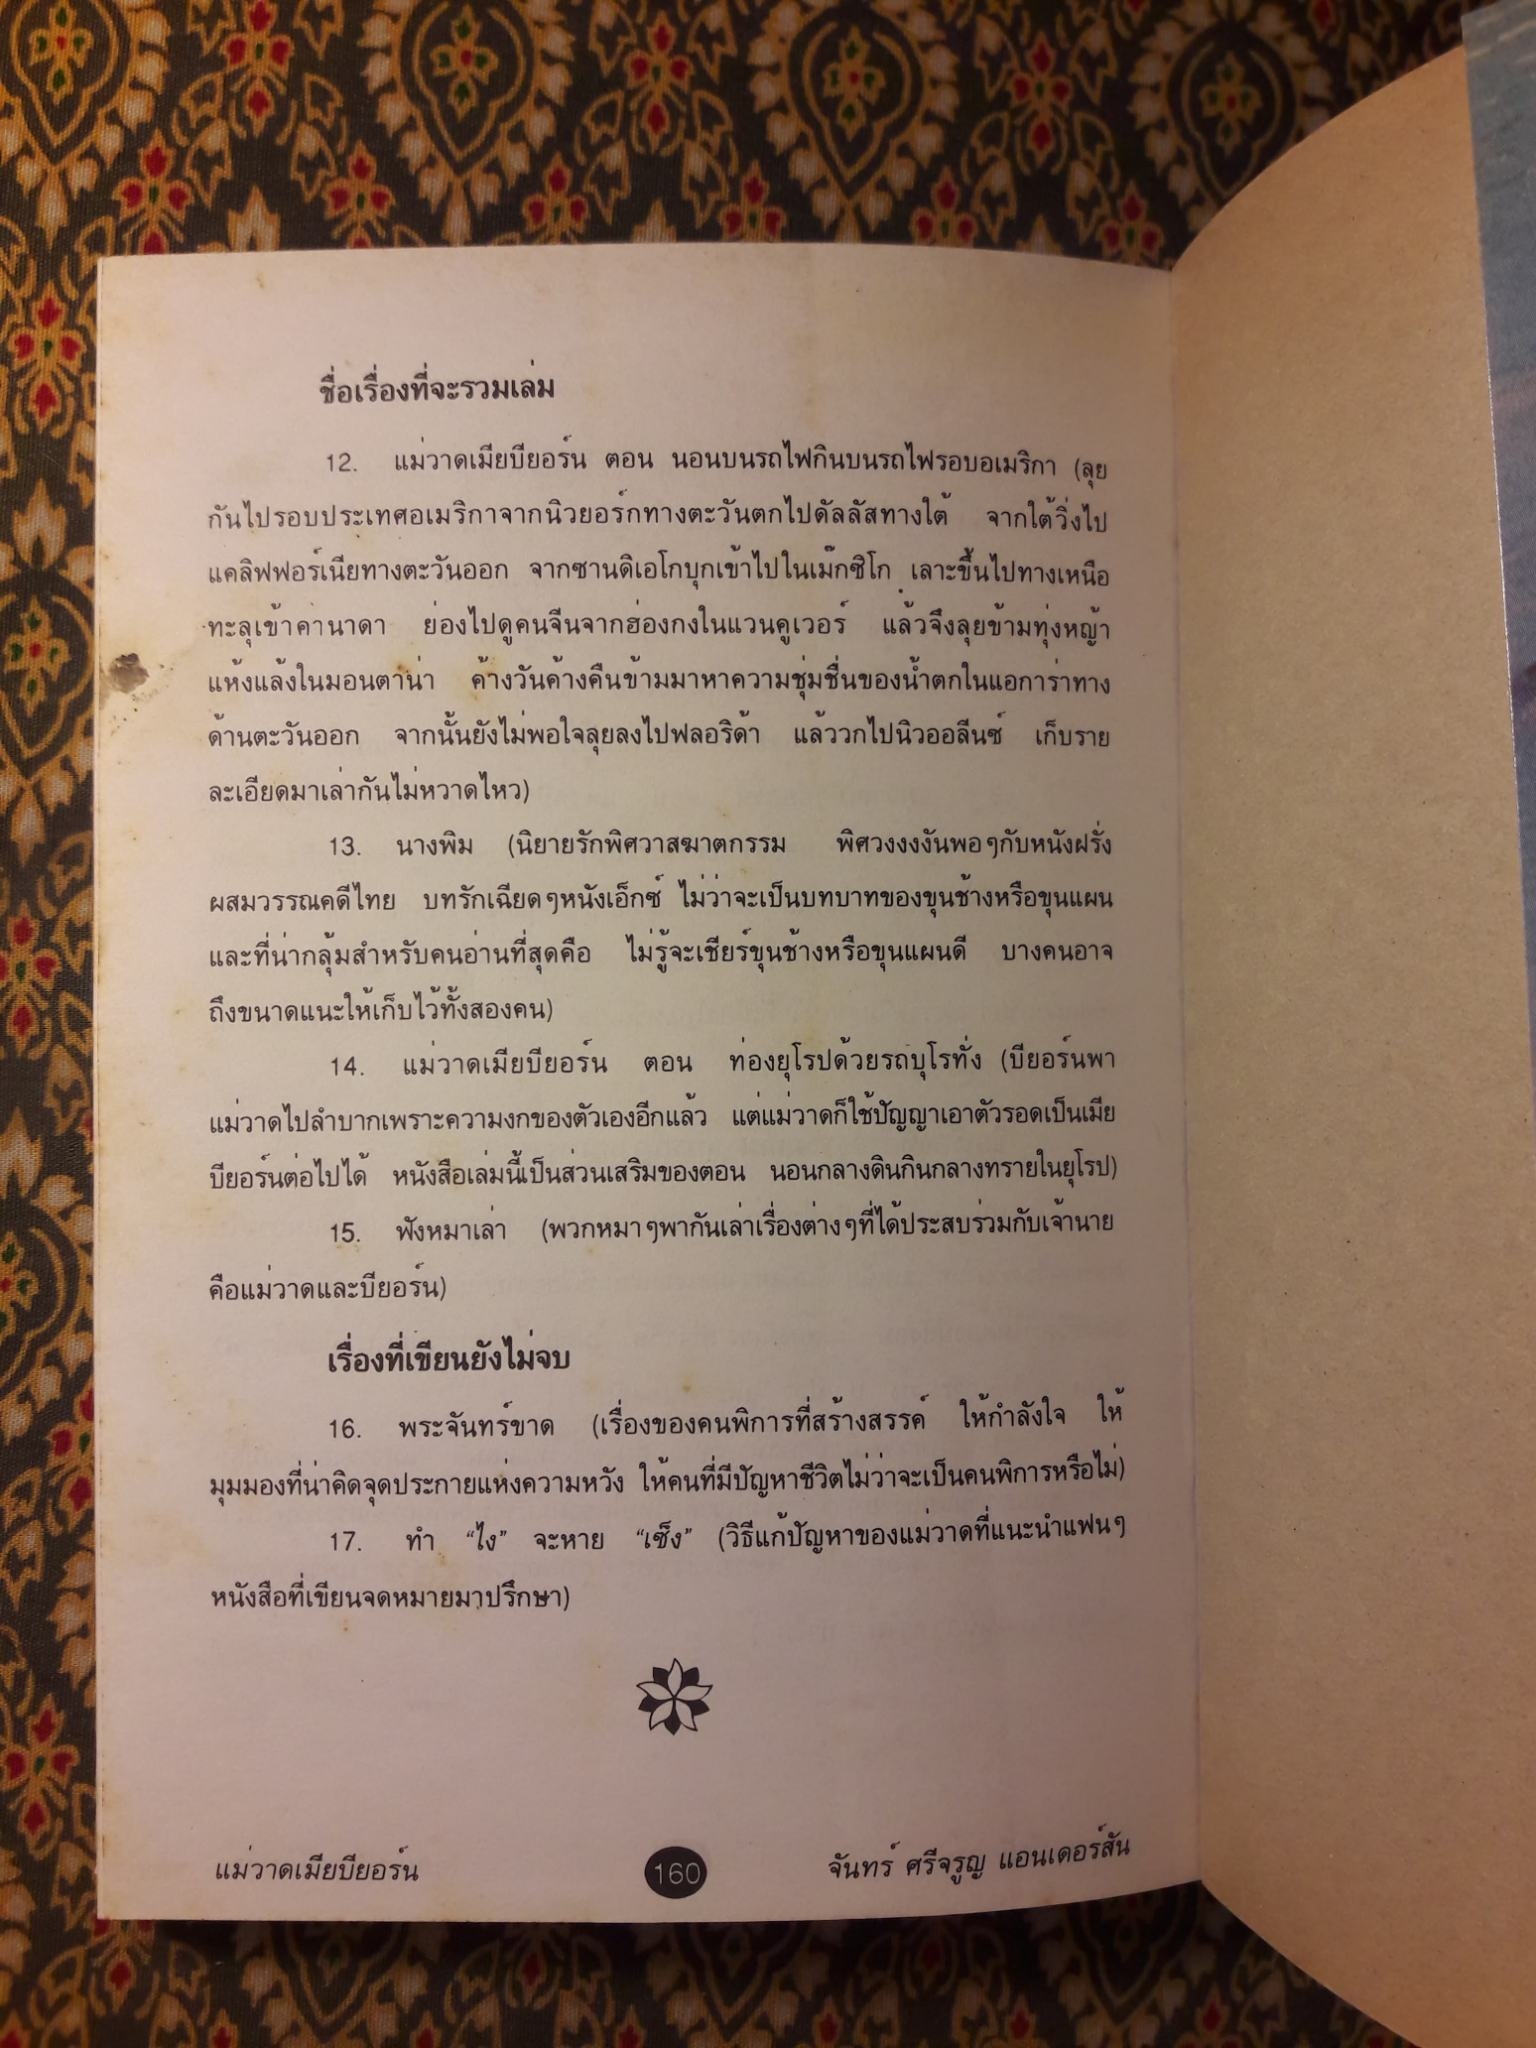 ชื่อเรื่องที่จะรวมเล่ม
12. แม่วาดเมียบียอร์น ตอน นอนบนรถไฟกินบนรถไฟรอบอเมริกา (ลุย
กันไปรอบประเทศอเมริกาจากนิวยอร์กทางตะวันตกไปดัลลัสทางใต้ จากใต้วิ่งไป
แคลิฟฟอร์เนียทางตะวันออก จากซานดิเอโกบุกเข้าไปในเม๊กซิโก เลาะขึ้นไปทางเหนือ
ทะลุเข้าคานาดา ย่องไปดูคนจีนจากฮ่องกงในแวนคูเวอร์ แล้วจึงลุยข้ามทุ่งหญ้า
แห้งแล้งในมอนตาน่า ค้างวันค้างคืนข้ามมาหาความชุ่มชื่นของน้ำตกในแอการ่าทาง
ด้านตะวันออก จากนั้นยังไม่พอใจลุยลงไปฟลอริด้า แล้ววกไปนิวออลีนซ์ เก็บราย
ละเอียดมาเล่ากันไม่หวาดไหว)
13. นางพิม (นิยายรักพิศวาสฆาตกรรม พิศวงงงงันพอๆกับหนังฝรั่ง
ผสมวรรณคดีไทย บทรักเฉียดๆหนังเอ็กซ์ ไม่ว่าจะเป็นบทบาทของขุนช้างหรือขุนแผน
และที่น่ากลุ้มสำหรับคนอ่านที่สุดคือ ไม่รู้จะเชียร์ขุนช้างหรือขุนแผนดี บางคนอาจ
ถึงขนาดแนะให้เก็บไว้ทั้งสองคน)
14. แม่วาดเมียบียอร์น ตอน ท่องยุโรปด้วยรถบุโรทั่ง (บียอร์นพา
แม่วาดไปลำบากเพราะความงกของตัวเองอีกแล้ว แต่แม่วาดก็ใช้ปัญญาเอาตัวรอดเป็นเมีย
บียอร์นต่อไปได้ หนังสือเล่มนี้เป็นส่วนเสริมของตอน นอนกลางดินกินกลางทรายในยุโรป)
15. ฟังหมาเล่า (พวกหมาๆพากันเล่าเรื่องต่างๆที่ได้ประสบร่วมกับเจ้านาย
คือแม่วาดและบียอร์น)
เรื่องที่เขียนยังไม่จบ
16. พระจันทร์ขาด (เรื่องของคนพิการที่สร้างสรรค์ ให้กำลังใจ ให้
มุมมองที่น่าคิดจุดประกายแห่งความหวัง ให้คนที่มีปัญหาชีวิตไม่ว่าจะเป็นคนพิการหรือไม่)
17. ทำ “ไง” จะหาย “เซ็ง” (วิธีแก้ปัญหาของแม่วาดที่แนะนำแฟนๆ
หนังสือที่เขียนจดหมายมาปรึกษา)
แม่วาดเมียบียอร์น 160 จันทร์ ศรีจรูญ แอนเดอร์สัน